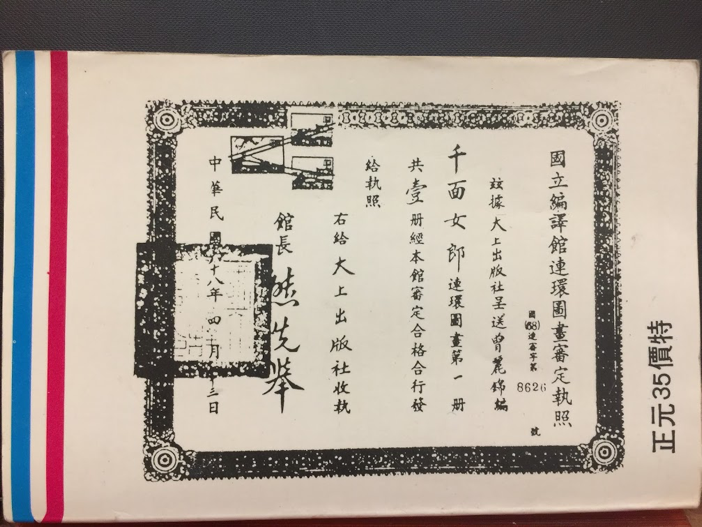 國立編譯館連環圖畫審定執照
國(68)連審字第8626號
茲據大上出版社呈送曾麗錦編
千面女郎連環圖畫第一册
共壹册經本館審定合格合行發
給執照
右給大上出版社收執
館長 熊先舉
中華民國六十八年四月十三日
特價35元正